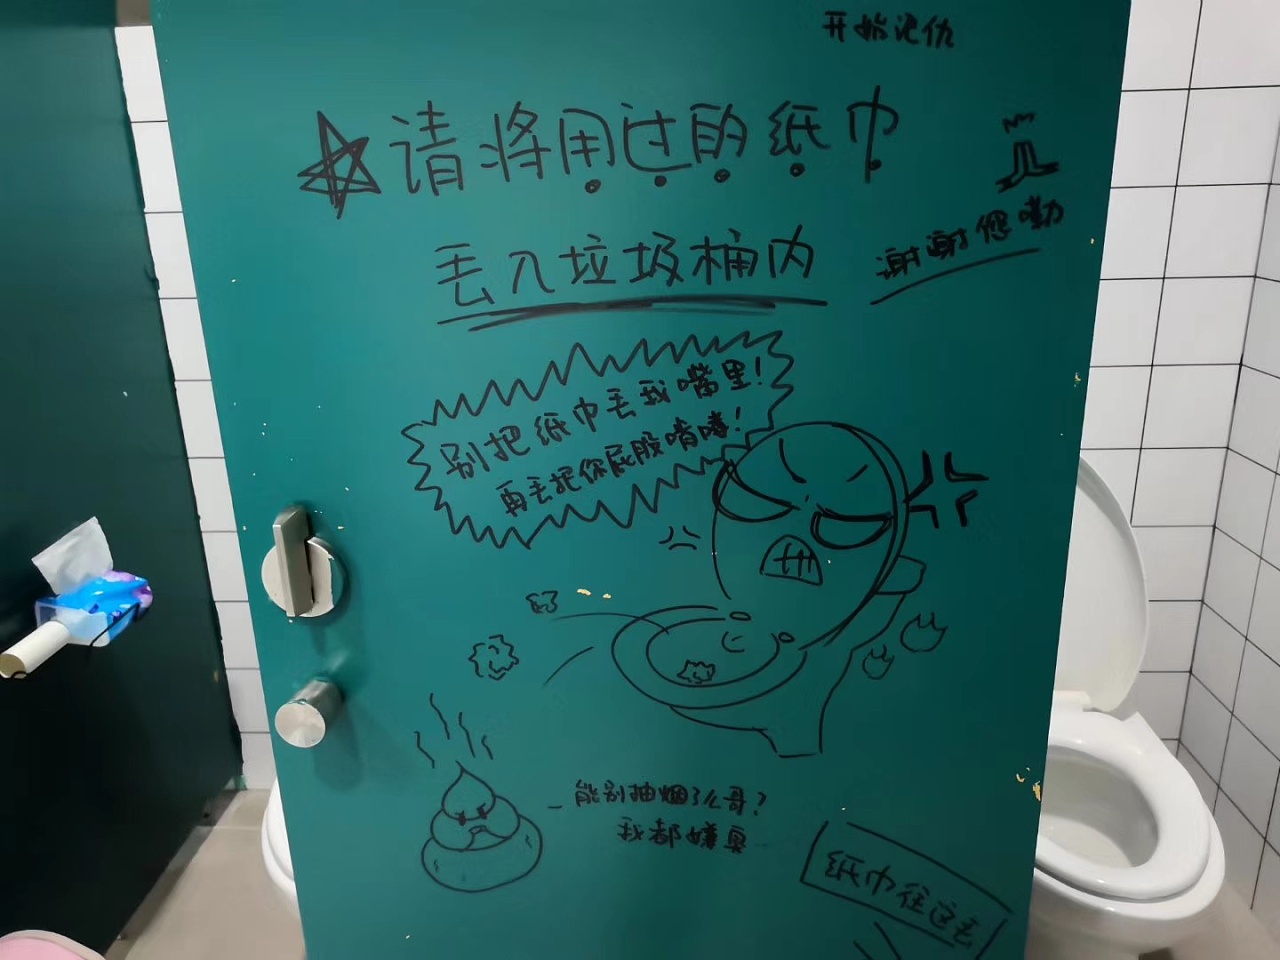 开始记仇
请将用过的纸巾
丢入垃圾桶内
谢谢您嘞
别把纸巾丢我嘴里！
再丢把你屁股啃喽！
能别抽烟了么哥？
我都嫌臭
纸巾往这丢